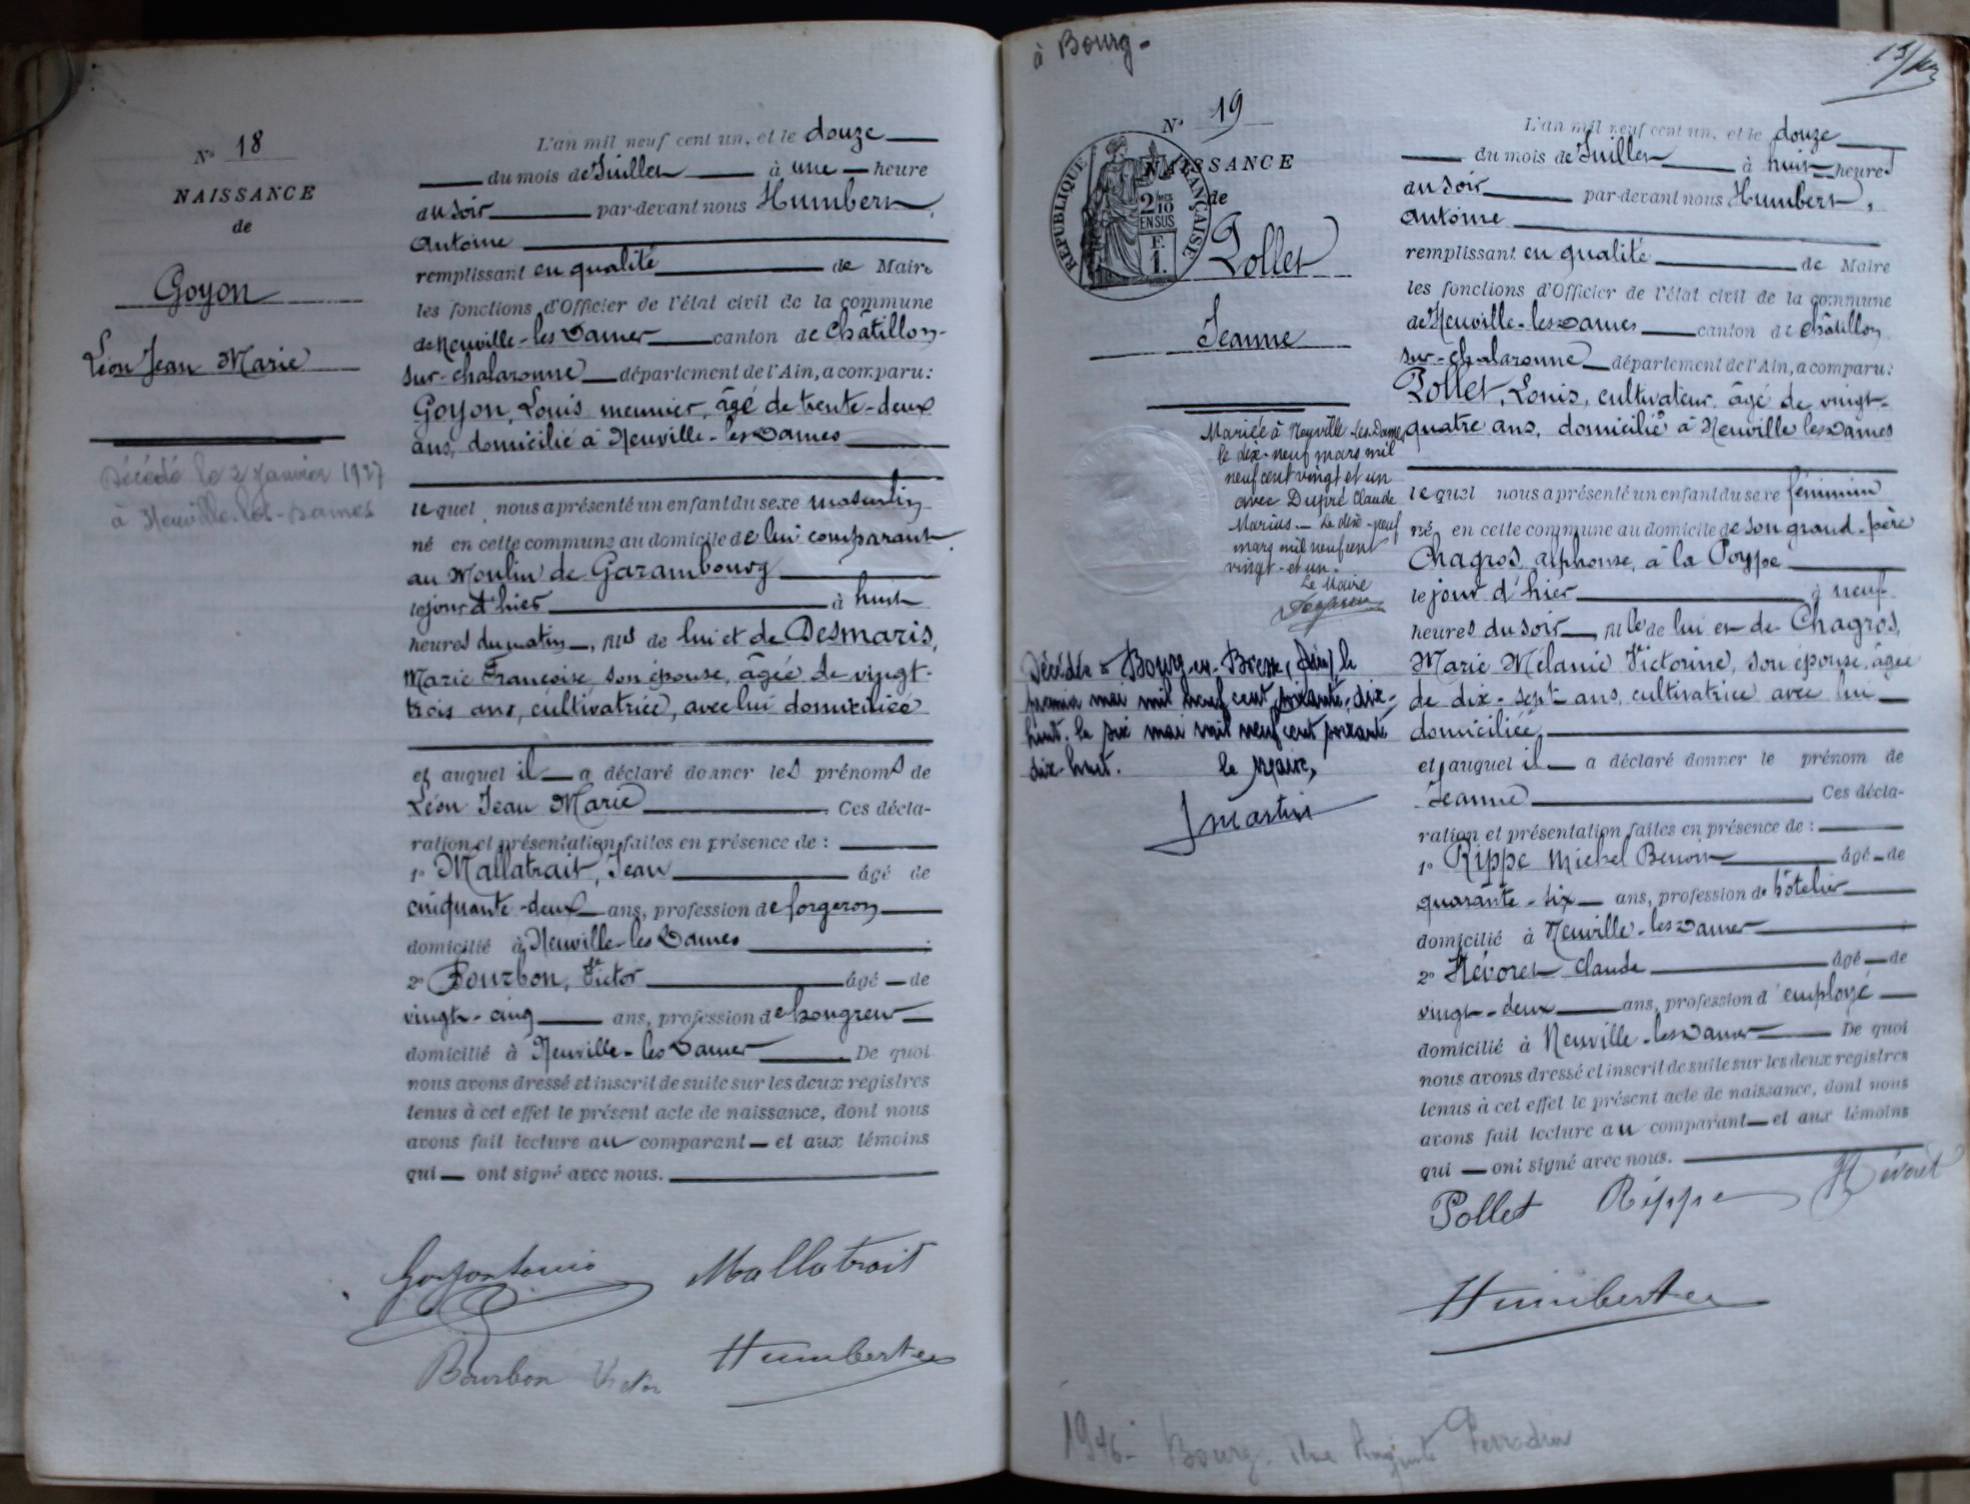 N° 18
NAISSANCE
de
Goyon
Léon Jean Marie
Décédé le 2 Janvier 1937
à Neuville-les-Dames
L'an mil neuf cent un, et le douze
du mois de Juillet à une heure
du soir par-devant nous Humbert,
Antoine
remplissant en qualité de Maire
les fonctions d'Officier de l'état civil de la commune
de Neuville-les-Dames canton de Châtillon-
sur-chalaronne département de l'Ain, a comparu:
Goyon, Louis, meunier, âgé de trente-deux
ans, domicilié à Neuville-les-Dames
lequel nous a présenté un enfant du sexe masculin
né en cette commune au domicile de lui comparant
au Moulin de Garambourg
le jour d'hier à huit
heures du matin, fils de lui et de Desmaris,
Marie Françoise, son épouse, âgée de vingt-
trois ans, cultivatrice, avec lui domiciliée
et auquel il a déclaré donner les prénoms de
Léon Jean Marie Ces décla-
ration et présentation faites en présence de :
1° Mallatrait, Jean âgé de
cinquante-deux ans, profession de forgeron
domicilié à Neuville-les-Dames
2° Bourbon, Victor âgé de
vingt-cinq ans, profession de hongreur
domicilié à Neuville-les-Dames De quoi
nous avons dressé et inscrit de suite sur les deux registres
tenus à cet effet le présent acte de naissance, dont nous
avons fait lecture au comparant et aux témoins
qui ont signé avec nous.
Goyon Louis Mallatrait
Bourbon Victor Humbert
à Bourg-
N° 19
NAISSANCE
de
RÉPUBLIQUE FRANÇAISE
2/10 EN SUS
F. 1.
Pollet
Jeanne
Mariée à Neuville-les-Dames
le dix-neuf mars mil
neuf cent vingt et un
avec Dupré Claude
Marius - Le dix-neuf
mars mil neuf cent
vingt-et-un.
Le Maire
Décédée à Bourg-en-Bresse (Ain) le
premier mai mil neuf cent soixante-dix-
huit. le six mai mil neuf cent soixante
dix-huit. le Maire,
J Martin
L'an mil neuf cent un, et le douze
du mois de Juillet à huit heures
du soir par-devant nous Humbert,
Antoine
remplissant en qualité de Maire
les fonctions d'Officier de l'état civil de la commune
de Neuville-les-Dames canton de Châtillon
sur-chalaronne département de l'Ain, a comparu:
Pollet, Louis, cultivateur, âgé de vingt-
quatre ans, domicilié à Neuville les Dames
lequel nous a présenté un enfant du sexe féminin
né, en cette commune au domicile de son grand-père
Chagros, alphonse, à la Poype
le jour d'hier à neuf
heures du soir, fille de lui et de Chagros,
Marie Mélanie Victorine, son épouse, âgée
de dix-sept ans, cultivatrice avec lui
domiciliée
et auquel il a déclaré donner le prénom de
Jeanne Ces décla-
ration et présentation faites en présence de :
1° Rippe Michel Benoit âgé de
quarante-six ans, profession de hôtelier
domicilié à Neuville-les-Dames
2° Névoret Claude âgé de
vingt-deux ans, profession d'employé
domicilié à Neuville-les-Dames De quoi
nous avons dressé et inscrit de suite sur les deux registres
tenus à cet effet le présent acte de naissance, dont nous
avons fait lecture au comparant et aux témoins
qui ont signé avec nous.
Pollet Rippe Névoret
Humbert
1946- Bourg. rue